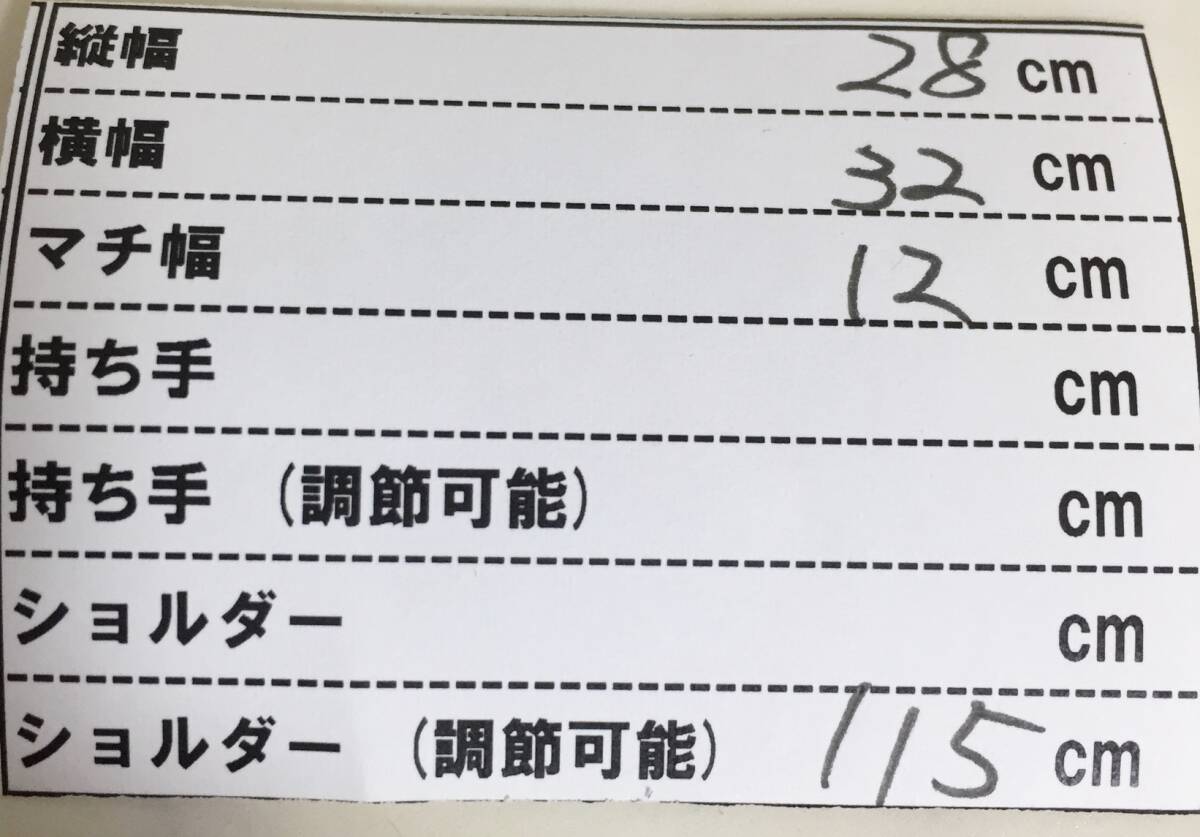 縦幅 28 cm
横幅 32 cm
マチ幅 12 cm
持ち手 cm
持ち手 (調節可能) cm
ショルダー cm
ショルダー (調節可能) 115 cm